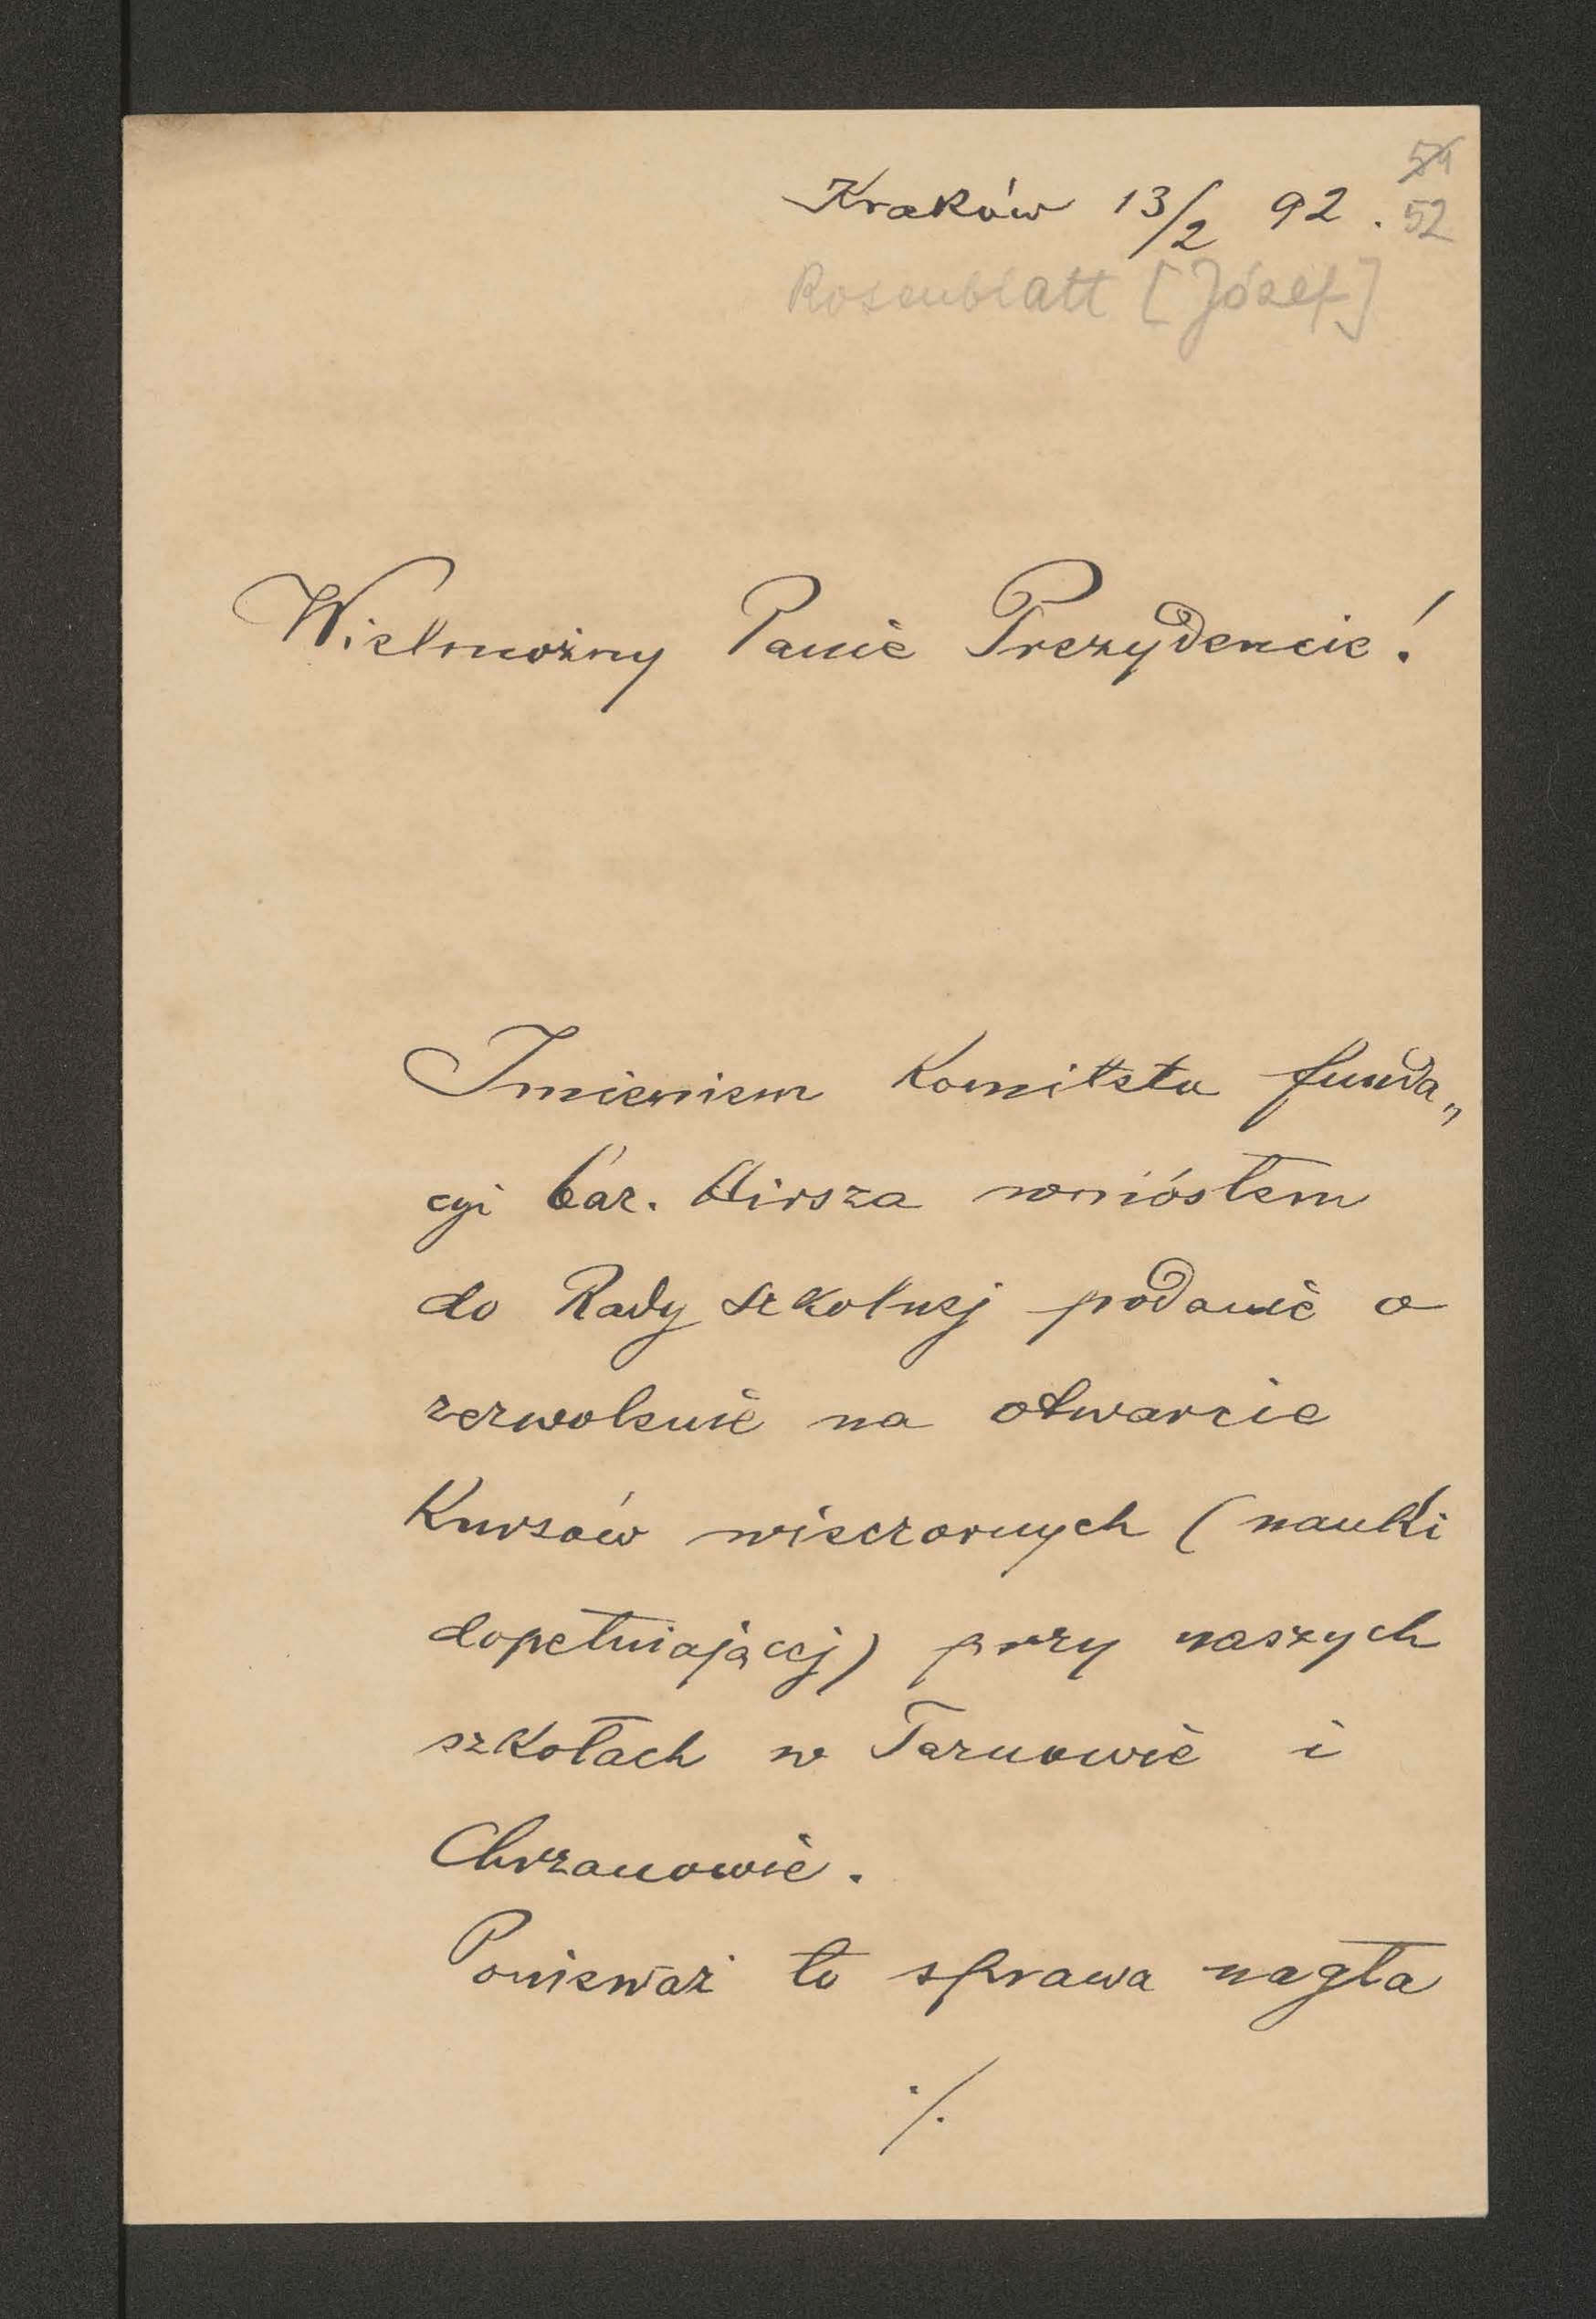 54
Kraków 13/2 92.
52
Rosenblatt [Józef]
Wielmożny Panie Prezydencie!
Imieniem Komitetu funda„
cyi bar. Hirsza wniósłem
do Rady szkolnej podanie o
zezwolenie na otwarcie
Kursów wieczornych (nauki
dopełniającej) przy naszych
szkołach w Tarnowie i
Chrzanowie.
Ponieważ to sprawa nagła
./.